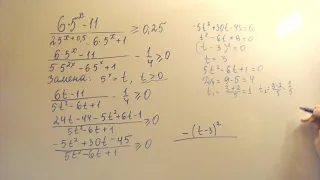 6·5ˣ-11 / 25^(x+0,5) - 6·5ˣ+1 ≥ 0,25
6·5ˣ-11 / 5·5²ˣ - 6·5ˣ+1 - 1/4 ≥ 0
Замена: 5ˣ = t, t>0
6t-11 / 5t²-6t+1 - 1/4 ≥ 0
24t-44-5t²+6t-1 / 5t²-6t+1 ≥ 0
-5t²+30t-45 / 5t²-6t+1 ≥ 0
-5t²+30t-45=0
t²-6t+9=0
(t-3)²=0
t=3
5t²-6t+1=0
=9-5=4
-(t-3)²